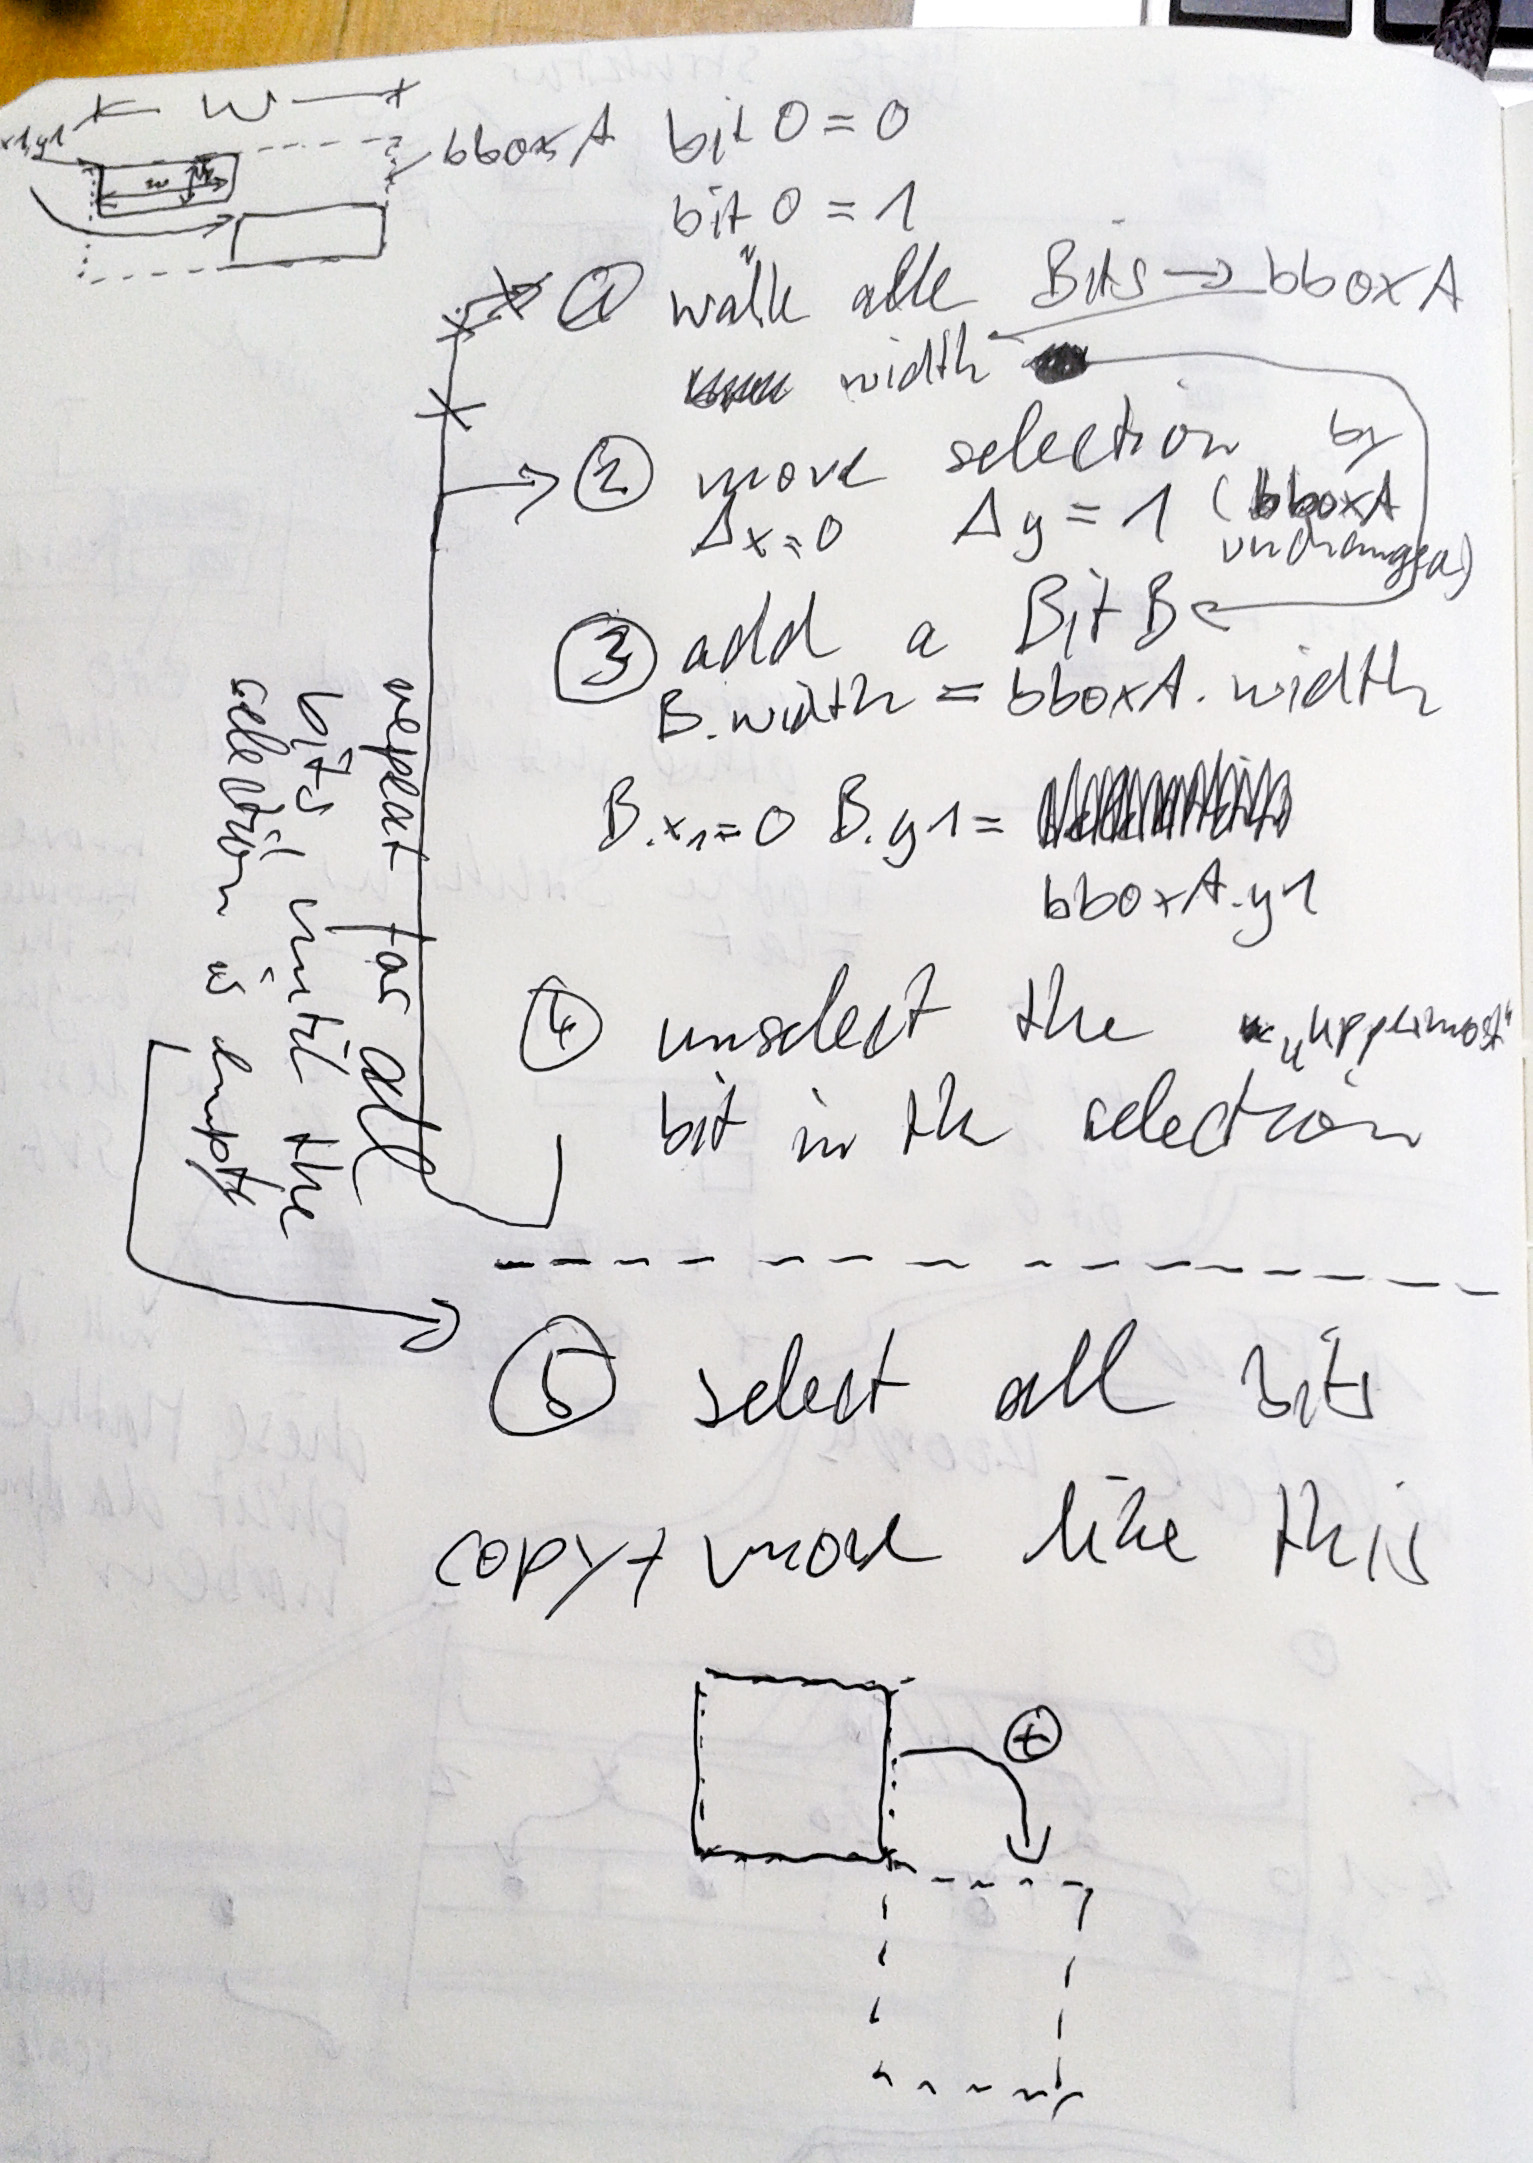 W
x1,y1
w
bboxA bit 0 = 0
bit 0 = 1
① wähle alle Bits → bboxA
width
② move selection by
Δx=0 Δy = 1 (bboxA
unchanged)
③ add a Bit B
B.width = bboxA.width
B.x1=0 B.y1=
bboxA.y1
④ unselect the „uppermost“
bit in the selection
repeat for all
bits until the
selection is empty
⑤ select all bits
copy + move like this
+